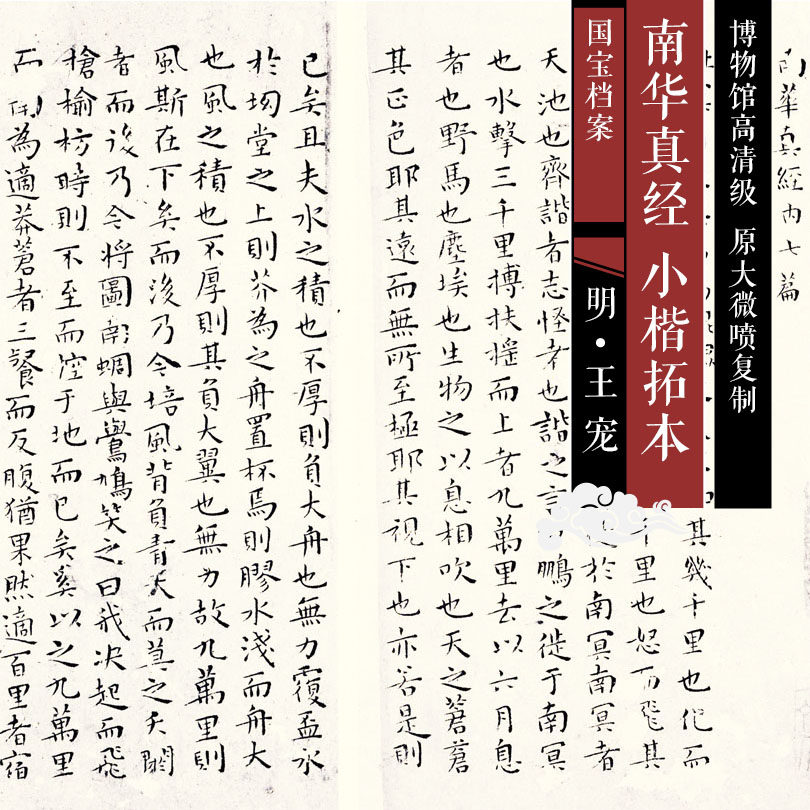 南華真經內七篇
博物馆高清级 原大微喷复制
南华真经 小楷拓本
国宝档案
明·王宠
其幾千里也化而
千里也怒而飛其
徙於南冥南冥者
天池也齊諧者志怪者也諧之言曰鵬之徙于南冥
也水擊三千里摶扶搖而上者九萬里去以六月息
者也野馬也塵埃也生物之以息相吹也天之蒼蒼
其正色耶其遠而無所至極耶其視下也亦若是則
已矣且夫水之積也不厚則負大舟也無力覆盃水
於坳堂之上則芥為之舟置杯焉則膠水淺而舟大
也風之積也不厚則其負大翼也無力故九萬里則
風斯在下矣而後乃今培風背負青天而莫之夭閼
者而後乃今將圖南蜩與鷽鳩笑之曰我決起而飛
搶榆枋時則不至而控于地而已矣奚以之九萬里
而南為適莽蒼者三餐而反腹猶果然適百里者宿